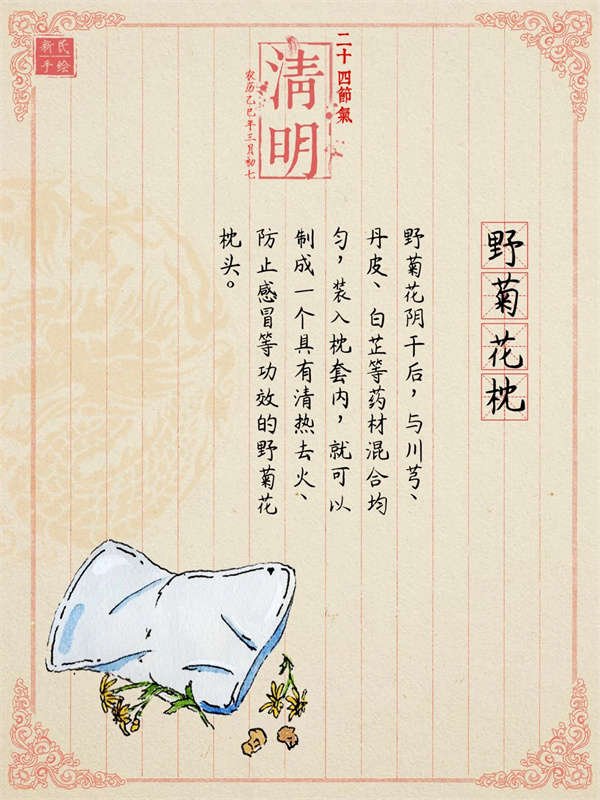 新民
手绘
二十四節氣
清明
农历乙巳年三月初七
野菊花枕
野菊花阴干后，与川芎、
丹皮、白芷等药材混合均
匀，装入枕套内，就可以
制成一个具有清热去火、
防止感冒等功效的野菊花
枕头。